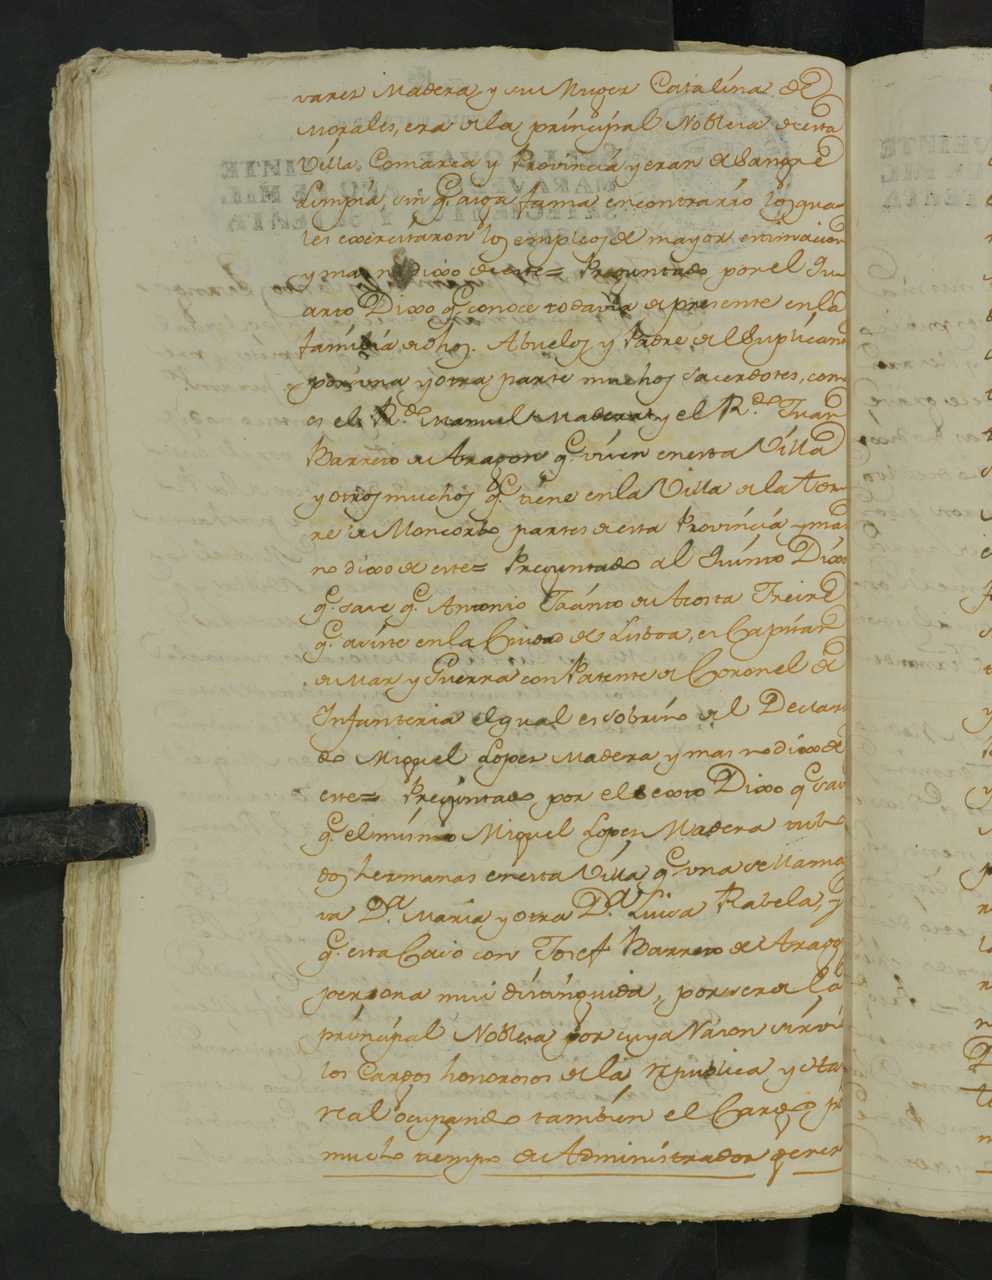 varez Madera, y su Muger Catalína de
Morales, era de la príncipal Nobleza de esta
Villa, Comarca y Provincia y eran de Sangre
Límpia, sin q.e aiga fama encontrarío los qua-
les exercitaron los empleos de mayor estimacion
y mas no dixo de este= Preguntado por el Qu-
arto Dixo q.e conoce todavia de presente en la
família de dhos. Abuelos y Padre del Suplican
por una y otra parte muchos Sacerdotes, como
es el R.do Manuel Madera, y el R.do Juan
Barreto de Aragon q.e víven en esta Villa
y otros muchos q.e tiene en la Villa de la Tor-
re de Moncorbo partes de esta Província y mas
no dixo de este= Preguntado al Quínto Dixo
q.e save q.e Antonio Jacínto de Acosta Freire
q.e asiste en la Ciudad de Lisboa, es Capítan
de Mar y Guerra con Patente de Coronel de
Infanteria el qual es sobríno del Declara
do Miguel Lopez Madera, y mas no dixo de
este= Pregúntado por el sexto Dixo q.e save
q.e el mísmo Miguel Lopez Madera tubo
dos hermanas en esta Villa q.e una se llama
va D.a María y otra D.a Luisa Rabela, y
q.e esta Casó con Josef Barreto de Arago
persona mui dístinguida, por ser de la
príncipal Nobleza por cuya Razon sírvi
los Cargos honorosos de la republica y
real ocupando tambíen el Cargo p.r
mucho tiempo de Administrador gener